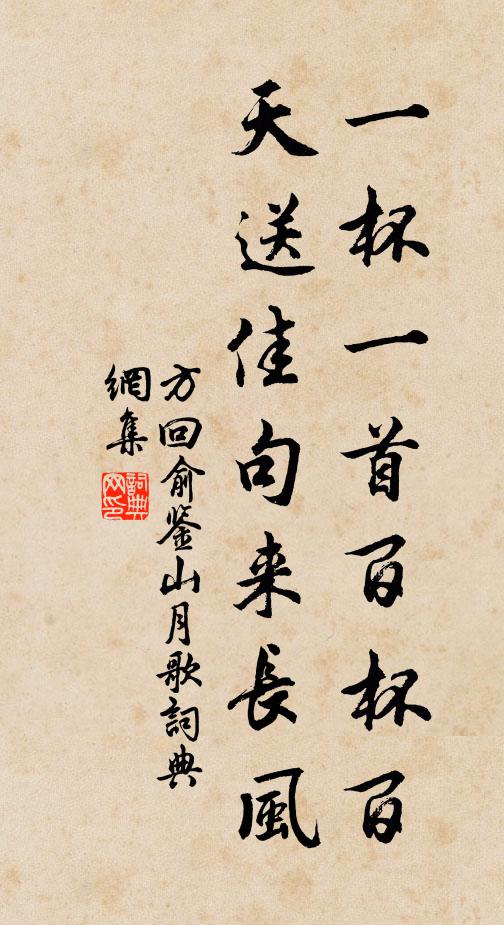 一杯一首百杯百
天送佳句来長風
方回俞鉴山月歌詞典
網集
詞典
网印